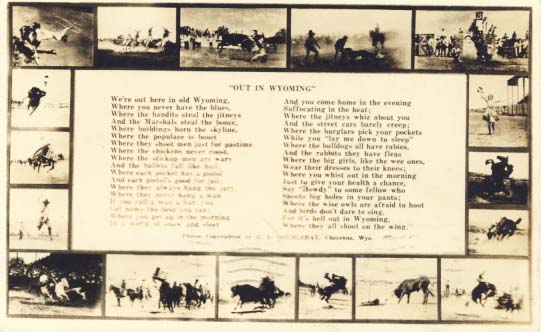 "OUT IN WYOMING"
We're out here in old Wyoming,
Where you never have the blues,
Where the bandits steal the jitneys
And the Marshals steal the booze,
Where buildings horn the skyline,
Where the populace is boost
Where they shoot men just for pastime
Where the chickens never roost,
Where the stickup men are wary
And the bullets fall like hail;
Where each pocket has a pistol
And each pistol's good for jail;
Where they always hang the jury,
Where they never hang a man
If you call a man a liar, you
Get home the best you can;
Where you get up in the morning
In a world of snow and sleet
And you come home in the evening
Suffocating in the heat;
Where the jitneys whiz about you
And the street cars barely creep;
Where the burglars pick your pockets
While you "lay me down to sleep"
Where the bulldogs all have rabies,
And the rabbits they have fleas
Where the big girls, like the wee ones,
Wear their dresses to their knees;
Where you whist out in the morning
Just to give your health a chance,
Say "Howdy" to some fellow who
Shoots big holes in your pants;
Where the wise owls are afraid to hoot
And birds don't dare to sing,
For it's hell out in Wyoming,
Where they all shoot on the wing.
Photos Copyrighted by DOUBLEDAY, Cheyenne, Wyo.